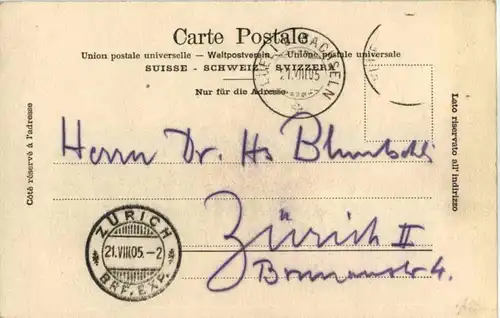 Carte Postale
Union postale universelle. – Weltpostverein. – Unione postale universale
SUISSE - SCHWEIZ - SVIZZERA
Nur für die Adresse
SACHSELN
21.VIII.05
Côté réservé à l'adresse
Lato riservato all' indirizzo
Herrn Dr. Hs Bluntschli
Zürich II
4.
ZÜRICH
21.VIII.05.-2
BRF. EXP.